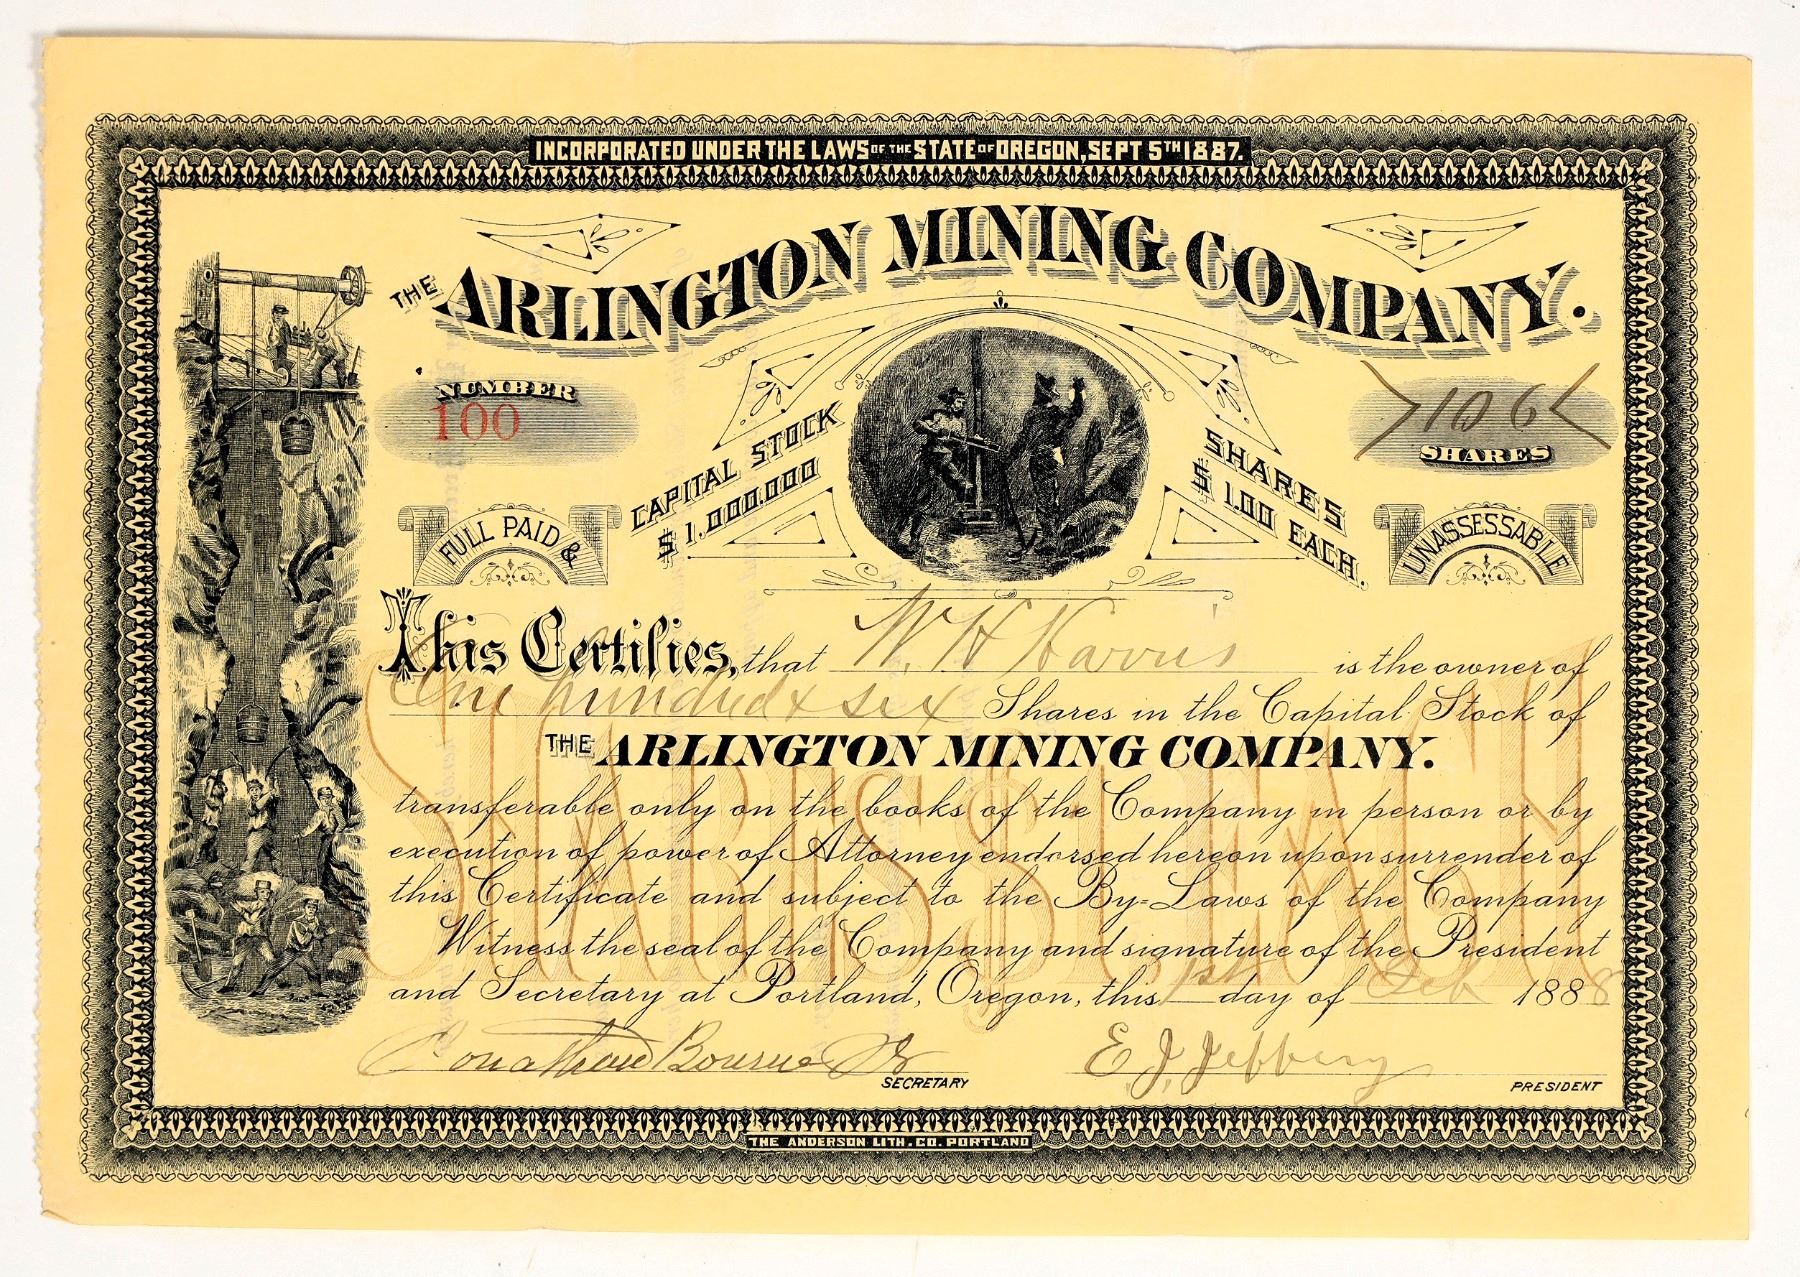 INCORPORATED UNDER THE LAWS OF THE STATE OF OREGON, SEPT 5TH 1887.
THE ARLINGTON MINING COMPANY.
NUMBER
100
106
SHARES
CAPITAL STOCK
$1,000.000
SHARES
$1.00 EACH.
FULL PAID &
UNASSESSABLE
This Certifies, that W. H Harris is the owner of
One hundred & six Shares in the Capital Stock of
THE ARLINGTON MINING COMPANY.
transferable only on the books of the Company in person or by
execution of power of Attorney endorsed hereon upon surrender of
this Certificate and subject to the By-Laws of the Company
Witness the seal of the Company and signature of the President
and Secretary at Portland, Oregon, this 1st day of Feb 1888
SHARES $1 EACH
Jonathan Bourne Jr
SECRETARY
E. J. Jeffery
PRESIDENT
THE ANDERSON LITH. CO. PORTLAND